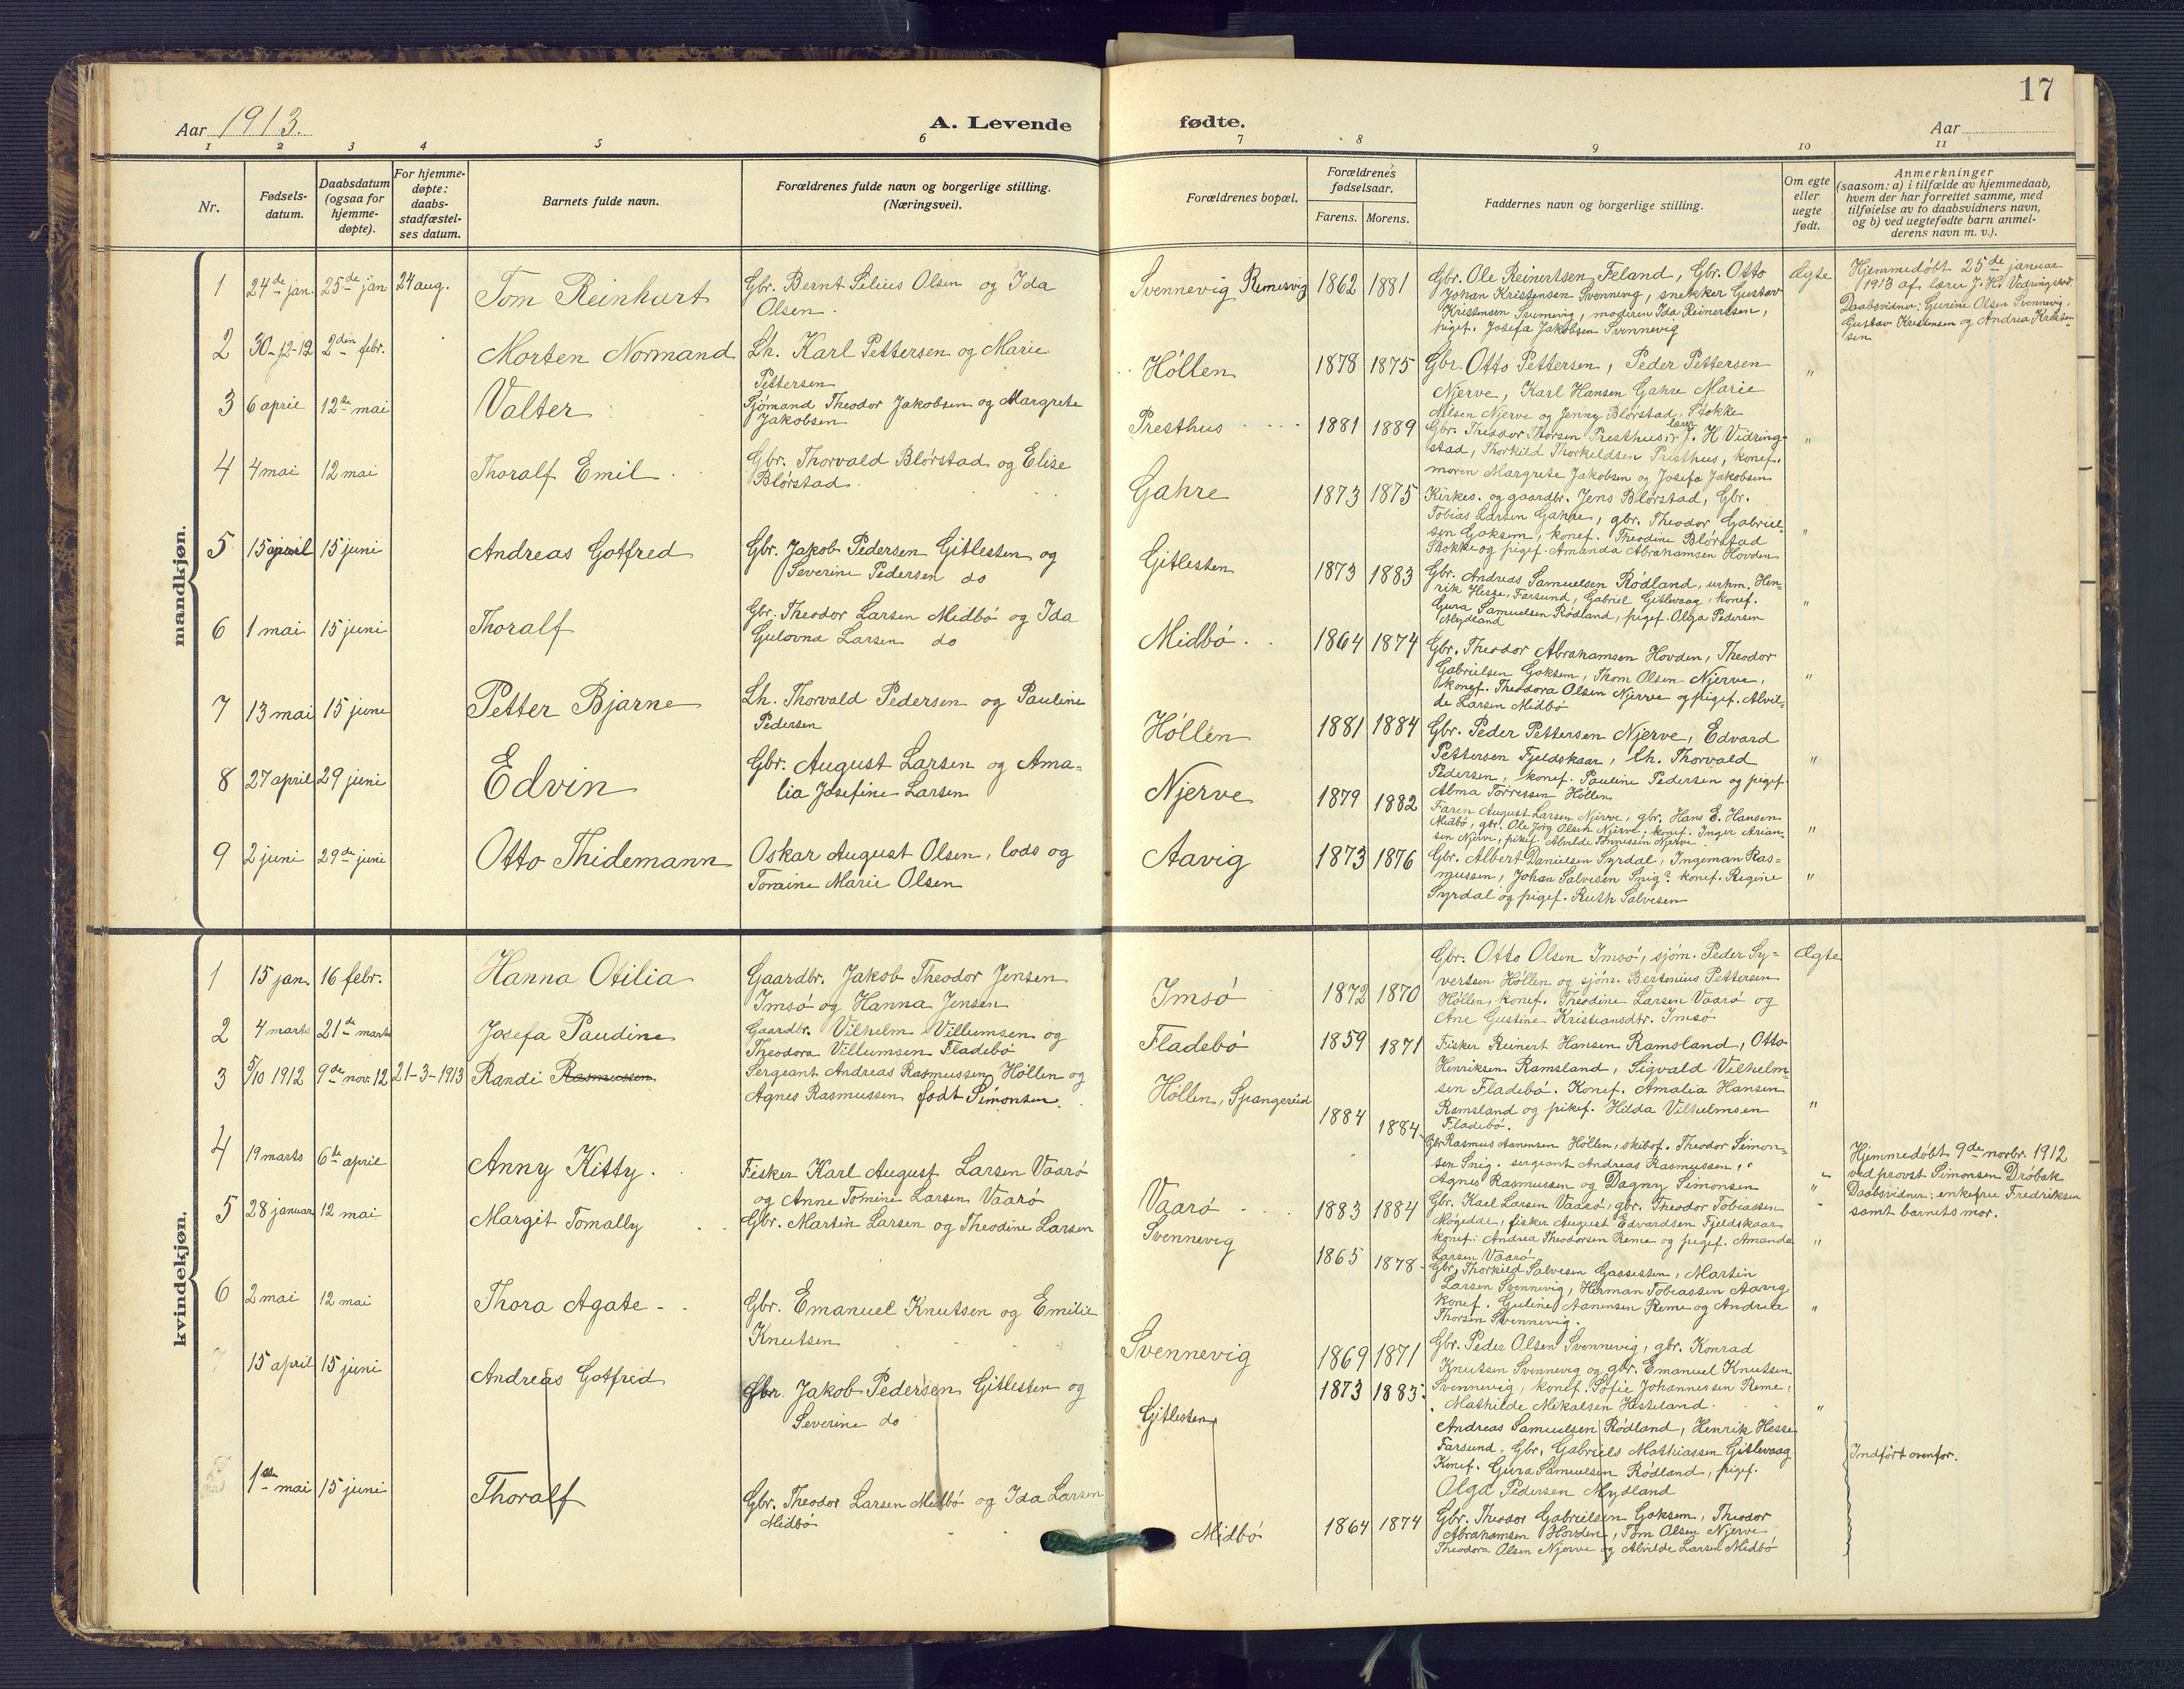 17
Aar 1913.
A. Levende
fødte.
Aar
1 2 3 4 5 6 7 8 9 10 11
Nr.
Fødsels-
datum.
Daabsdatum
(ogsaa for
hjemme-
døpte).
For hjemme-
døpte:
daabs-
stadfæstel-
ses datum.
Barnets fulde navn.
Forældrenes fulde navn og borgerlige stilling.
(Næringsvei).
Forældrenes bopæl.
Forældrenes
fødselsaar.
Farens. Morens.
Faddernes navn og borgerlige stilling.
Om egte
eller
uegte
født.
Anmerkninger
(saasom: a) i tilfælde av hjemmedaab,
hvem der har forrettet samme, med
tilføielse av to daabsvidners navn,
og b) ved uegtefødte barn anmel-
derens navn m. v.).
mandkjøn.
1 24de jan. 25de jan 24 aug. Tom Reinhart
Gbr. Bernt Silius Olsen og Ida
Olsen.
Svennevig Remesvig 1862 1881
Gbr. Ole Reinertsen Feland, Gbr. Otto
Johan Kristensen Svennevig, snekker Gustav
Kristensen Svennevig, moderen Ida Reinertsen,
pigef. Josefa Jakobsen Svennevig
Ægte
Hjemmedøbt 25de januar
1913 af lærer J. H. Vidringstad.
Daabsvidner: Gurine Olsen Svennevig,
Gustav Kristensen og Andrea Kristen-
sen
2 30-12-12 2den febr. Morten Normand
Lh. Karl Pettersen og Marie
Pettersen
Höllen 1878 1875
Gbr. Otto Pettersen, Peder Pettersen
Njerve, Karl Hansen Gahre Marie
Nilsen Njerve og Jenny Blørstad, Stokke
"
3 6 april 12te mai Valter
Sjömand Theodor Jakobsen og Margrete
Jakobsen
Presthus 1881 1889
Gbr. Theodor Thorsen Presthus, lærer J. H Vidring-
stad, Thorkild Thorkildsen Presthus, konef.
moren Margrete Jakobsen og Josefa Jakobsen
"
4 4 mai 12 mai Thoralf Emil
Gbr. Thorvald Blörstad og Elise
Blörstad.
Gahre 1873 1875
Kirkes. og gaardbr. Jens Blörstad, Gbr.
Tobias Larsen Gahre, gbr. Theodor Gabriel-
sen Goksem, konef. Theodine Blörstad
Stokke og pigef. Amanda Abrahamsen Hovden
"
5 15 april 15 juni Andreas Gotfred
Gbr. Jakob Pedersen Gitlesten og
Severine Pedersen do
Gitlesten 1873 1883
Gbr. Andreas Samuelsen Rödland, urhm. Hen-
rik Hesse, Farsund, Gabriel Gitlevaag, konef.
Gura Samuelsen Rödland, pigef. Olga Pedersen
Mydland
"
6 1 mai 15 juni Thoralf
Gbr. Theodor Larsen Midbö og Ida
Gulovna Larsen do
Midbö 1864 1874
Gbr. Theodor Abrahamsen Hovden, Theodor
Gabrielsen Goksem, Thom Olsen Njerve,
konef. Theodora Olsen Njerve og pigef. Alvil-
de Larsen Midbö
"
7 13 mai 15 june Petter Bjarne
Lh. Thorvald Pedersen og Pauline
Pedersen
Höllen 1881 1884
Gbr. Peder Pettersen Njerve, Edvard
Pettersen Fjeldskaar, Lh. Thorvald
Pedersen, konef. Pauline Pedersen og pigef.
Alma Torressen Höllen
"
8 27 april 29 juni Edvin
Gbr. August Larsen og Ama-
lia Josefine Larsen
Njerve 1879 1882
Faren August Larsen Njerve, gbr. Hans E. Hansen
Midbö, gbr. Ole Jörg Olsen Njerve, konef. Inger Arian-
sen Njerve, pikef. Alvilde Tönnessen Njerve.
"
9 2 juni 29de juni Otto Thidemann
Oskar August Olsen, lods og
Tomine Marie Olsen
Aavig 1873 1876
Gbr. Albert Danielsen Syrdal, Ingeman Ras-
mussen, Johan Salvesen Snig? konef. Regine
Syrdal og pigef. Ruth Salvesen
"
kvindekjøn.
1 15 jan. 16 febr. Hanna Otilia
Gaardbr. Jakob Theodor Jensen
Imsö og Hanna Jensen
Imsö 1872 1870
Gbr. Otto Olsen Imsö, sjöm. Peder Sy-
vertsen Höllen og sjöm. Bertenius Pettersen
Höllen, konef. Theodine Larsen Vaarö og
Ane Gustine Kristiansdtr. Imsö
Ægte
2 4 marts 21de marts Josefa Paudine
Gaardbr. Vilhelm Villumsen og
Theodora Villumsen Fladebö
Fladebö 1859 1871
Fisker Reinert Hansen Ramsland, Otto
Henriksen Ramsland, Sigvald Vilhelm-
sen Fladebö. Konef. Amalia Hansen
Ramsland og pikef. Hilda Vilhelmsen
Fladebö.
"
3 5/10 1912 9de nov. 12 21-3-1913 Randi Rasmussen
Sergeant Andreas Rasmussen Höllen og
Agnes Rasmussen født Simonsen.
Höllen, Spangereid 1884 1884
Gbr Rasmus Aanensen Höllen, skibof. Theodor Simon-
sen Snig. sergeant Andreas Rasmussen,
Agnes Rasmussen og Dagny Simonsen
"
Hjemmedöbt 9de novbr. 1912
ved provst Simonsen Dröbak
Daabsvidner: enkefrue Fredriksen
samt barnets mor.
4 19 marts 6te april Anny Kitty.
Fisker Karl August Larsen Vaarö
og Anne Tomine Larsen Vaarö
Vaarö 1883 1884
Gbr. Karl Larsen Vaarö, gbr. Theodor Tobiassen
Mögedal, fisker August Edvardsen Fjeldskaar
konef. Andrea Theodorsen Reme og pigef. Amanda
Larsen Vaarö
"
5 28 januar 12 mai Margit Tomally
Gbr. Martin Larsen og Theodine Larsen
Svennevig 1865 1878
Gbr. Thorkild Salvesen Gaasesten, Martin
Larsen Svennevig, Herman Tobiassen Aavig
konef. Guline Aanensen Reme og Andrea
Thorsen Svennevig.
"
6 2 mai 12 mai Thora Agate
Gbr. Emanuel Knutsen og Emilie
Knutsen
Svennevig 1869 1871
Gbr. Peder Olsen Svennevig, gbr. Konrad
Knutsen Svennevig og gbr. Emanuel Knutsen
Svennevig, konef. Sofie Johannessen Reme,
Mathilde Mikalsen Hesteland.
"
15 april 15 juni Andreas Gotfred
Gbr. Jakob Pedersen Gitlesten og
Severine do
Gitlesten 1873 1883
Andreas Samuelsen Rödland, Henrik Hesse
Farsund, Gbr. Gabriels Mathiassen Gitlevaag
Konef. Gura Samuelsen Rödland, pigef.
Olga Pedersen Mydland
Indført ovenfor.
1ste mai 15 juni Thoralf
Gbr. Theodor Larsen Midbö og Ida Larsen
Midbö
Midbö 1864 1874
Gbr. Theodor Gabrielsen Goksem, Theodor
Abrahamsen Hovden, Tom Olsen Njerve
Theodora Olsen Njerve og Alvilde Larsen Midbö